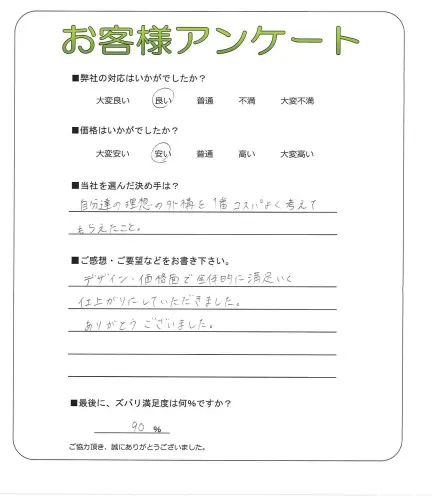 お客様アンケート
■弊社の対応はいかがでしたか？
大変良い 良い 普通 不満 大変不満
■価格はいかがでしたか？
大変安い 安い 普通 高い 大変高い
■当社を選んだ決め手は？
自分達の理想の外構を1番コスパよく考えて
もらえたこと。
■ご感想・ご要望などをお書き下さい。
デザイン・価格面で全体的に満足いく
仕上がりにしていただきました。
ありがとうございました。
■最後に、ズバリ満足度は何%ですか？
90 %
ご協力頂き、誠にありがとうございました。